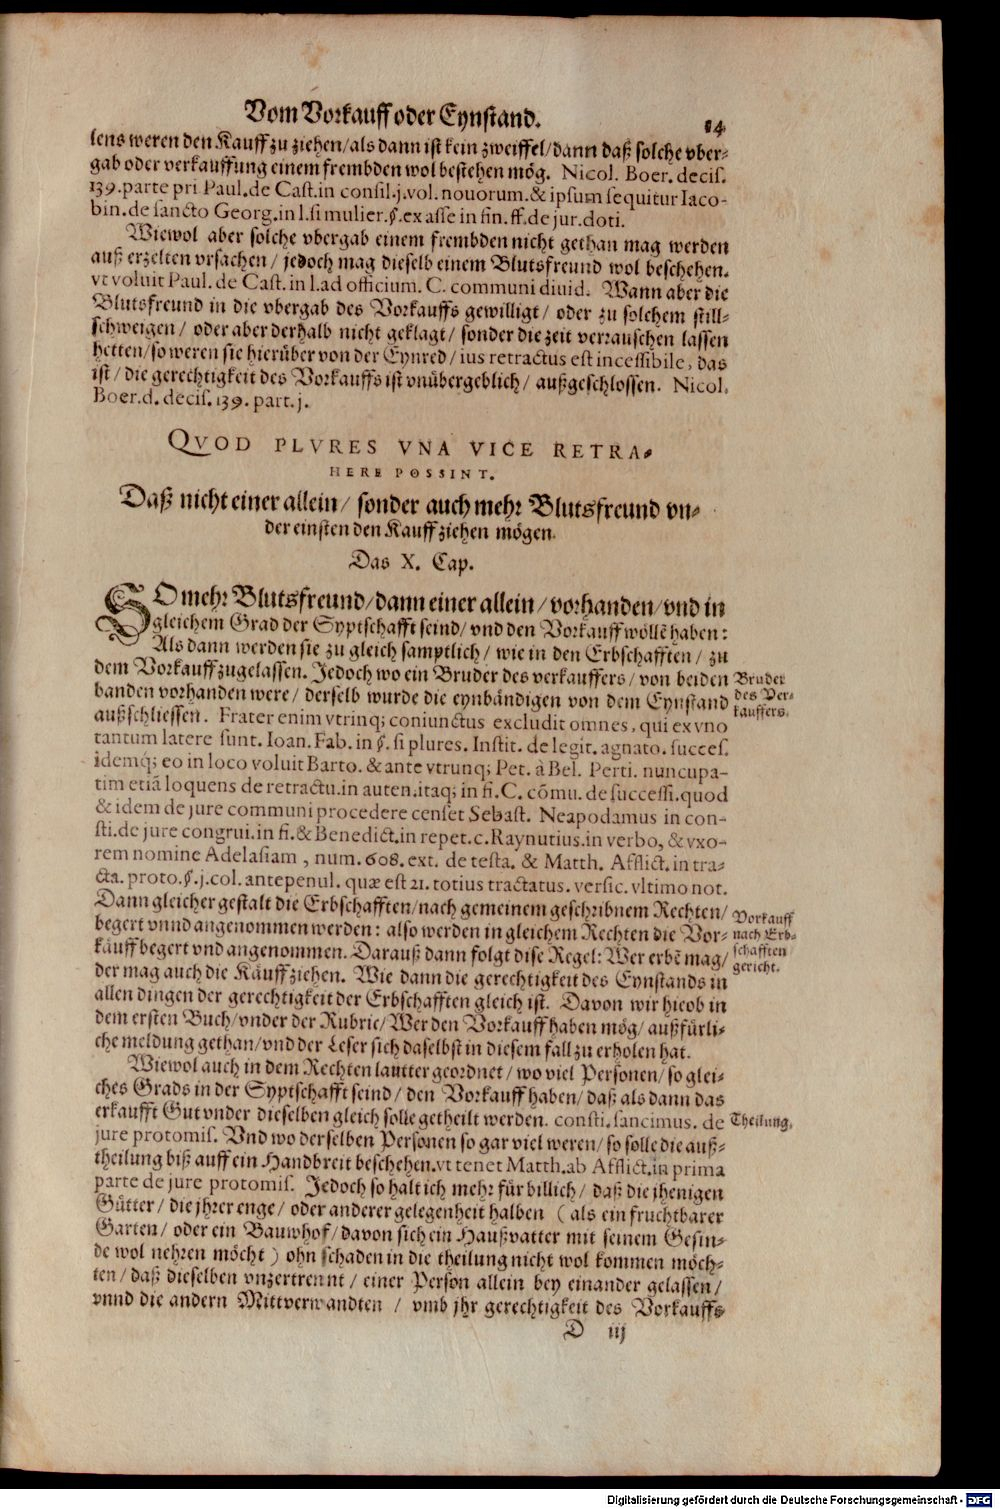 Vom Vorkauff oder Eynstand. 14
lens weren den Kauff zu ziehen/als dann ist kein zweiffel/dann daß solche vber-
gab oder verkauffung einem frembden wol bestehen mög. Nicol. Boer. decis.
139. parte pri Paul. de Cast. in consil. j. vol. nouorum. & ipsum sequitur Iaco-
bin. de sancto Georg. in l. si mulier. §. ex asse in fin. ff. de jur. doti.
Wiewol aber solche vbergab einem frembden nicht gethan mag werden
auß erzelten vrsachen / jedoch mag dieselb einem Blutsfreund wol beschehen.
vt voluit Paul. de Cast. in l. ad officium. C. communi diuid. Wann aber die
Blutsfreund in die vbergab des Vorkauffs gewilligt / oder zu solchem still-
schweigen / oder aber derhalb nicht geklagt / sonder die zeit verrauschen lassen
hetten/so weren sie hierüber von der Eynred / ius retractus est incessibile, das
ist / die gerechtigkeit des Vorkauffs ist vnübergeblich / außgeschlossen. Nicol.
Boer. d. decis. 139. part. j.
QVOD PLVRES VNA VICE RETRA-
HERE POSSINT.
Daß nicht einer allein / sonder auch mehr Blutsfreund vn-
der einsten den Kauff ziehen mögen.
Das X. Cap.
SO mehr Blutsfreund/dann einer allein/vorhanden/vnd in
gleichem Grad der Syptschafft seind/vnd den Vorkauff wöllē haben:
Als dann werden sie zu gleich samptlich / wie in den Erbschafften / zu
dem Vorkauff zugelassen. Jedoch wo ein Bruder des verkauffers/von beiden
banden vorhanden were / derselb wurde die eynbändigen von dem Eynstand
außschliessen. Frater enim vtrinq; coniunctus excludit omnes, qui ex vno
tantum latere sunt. Ioan. Fab. in §. si plures. Instit. de legit. agnato. succes.
idemq́; eo in loco voluit Barto. & ante vtrunq; Pet. à Bel. Perti. nuncupa-
tim etiā loquens de retractu. in auten. itaq; in fi. C. cōmu. de successi. quod
& idem de jure communi procedere censet Sebast. Neapodamus in con-
sti. de jure congrui. in fi. & Benedict. in repet. c. Raynutius. in verbo, & vxo-
rem nomine Adelasiam, num. 608. ext. de testa. & Matth. Afflict. in tra-
cta. proto. §. j. col. antepenul. quæ est 21. totius tractatus. versic. vltimo not.
Dann gleicher gestalt die Erbschafften/nach gemeinem geschribnem Rechten/
begert vnnd angenommen werden: also werden in gleichem Rechten die Vor-
käuff begert vnd angenommen. Darauß dann folgt dise Regel: Wer erbē mag/
der mag auch die Käuff ziehen. Wie dann die gerechtigkeit des Eynstands in
allen dingen der gerechtigkeit der Erbschafften gleich ist. Davon wir hieob in
dem ersten Buch/vnder der Rubric/Wer den Vorkauff haben mög/außfürli-
che meldung gethan/vnd der Leser sich daselbst in diesem fall zu erholen hat.
Wiewol auch in dem Rechten lautter geordnet / wo viel Personen/so glei-
ches Grads in der Syptschafft seind/ den Vorkauff haben/ daß als dann das
erkaufft Gut vnder dieselben gleich solle getheilt werden. consti. sancimus. de
jure protomis. Vnd wo derselben Personen so gar viel weren/so solle die auß-
theilung biß auff ein Handbreit beschehen. vt tenet Matth. ab Afflict. in prima
parte de jure protomis. Jedoch so halt ich mehr für billich / daß die jhenigen
Gütter / die jhrer enge / oder anderer gelegenheit halben (als ein fruchtbarer
Garten / oder ein Bauwhof/davon sich ein Haußvatter mit seinem Gesin-
de wol nehren möcht) ohn schaden in die theilung nicht wol kommen möch-
ten / daß dieselben vnzertrennt / einer Person allein bey einander gelassen /
vnnd die andern Mittverwandten / vmb jhr gerechtigkeit des Vorkauffs
D iij
Bruder
des Ver-
kauffers.
Vorkauff
nach Erb-
schafften
gericht.
Theilung.
Digitalisierung gefördert durch die Deutsche Forschungsgemeinschaft - DFG